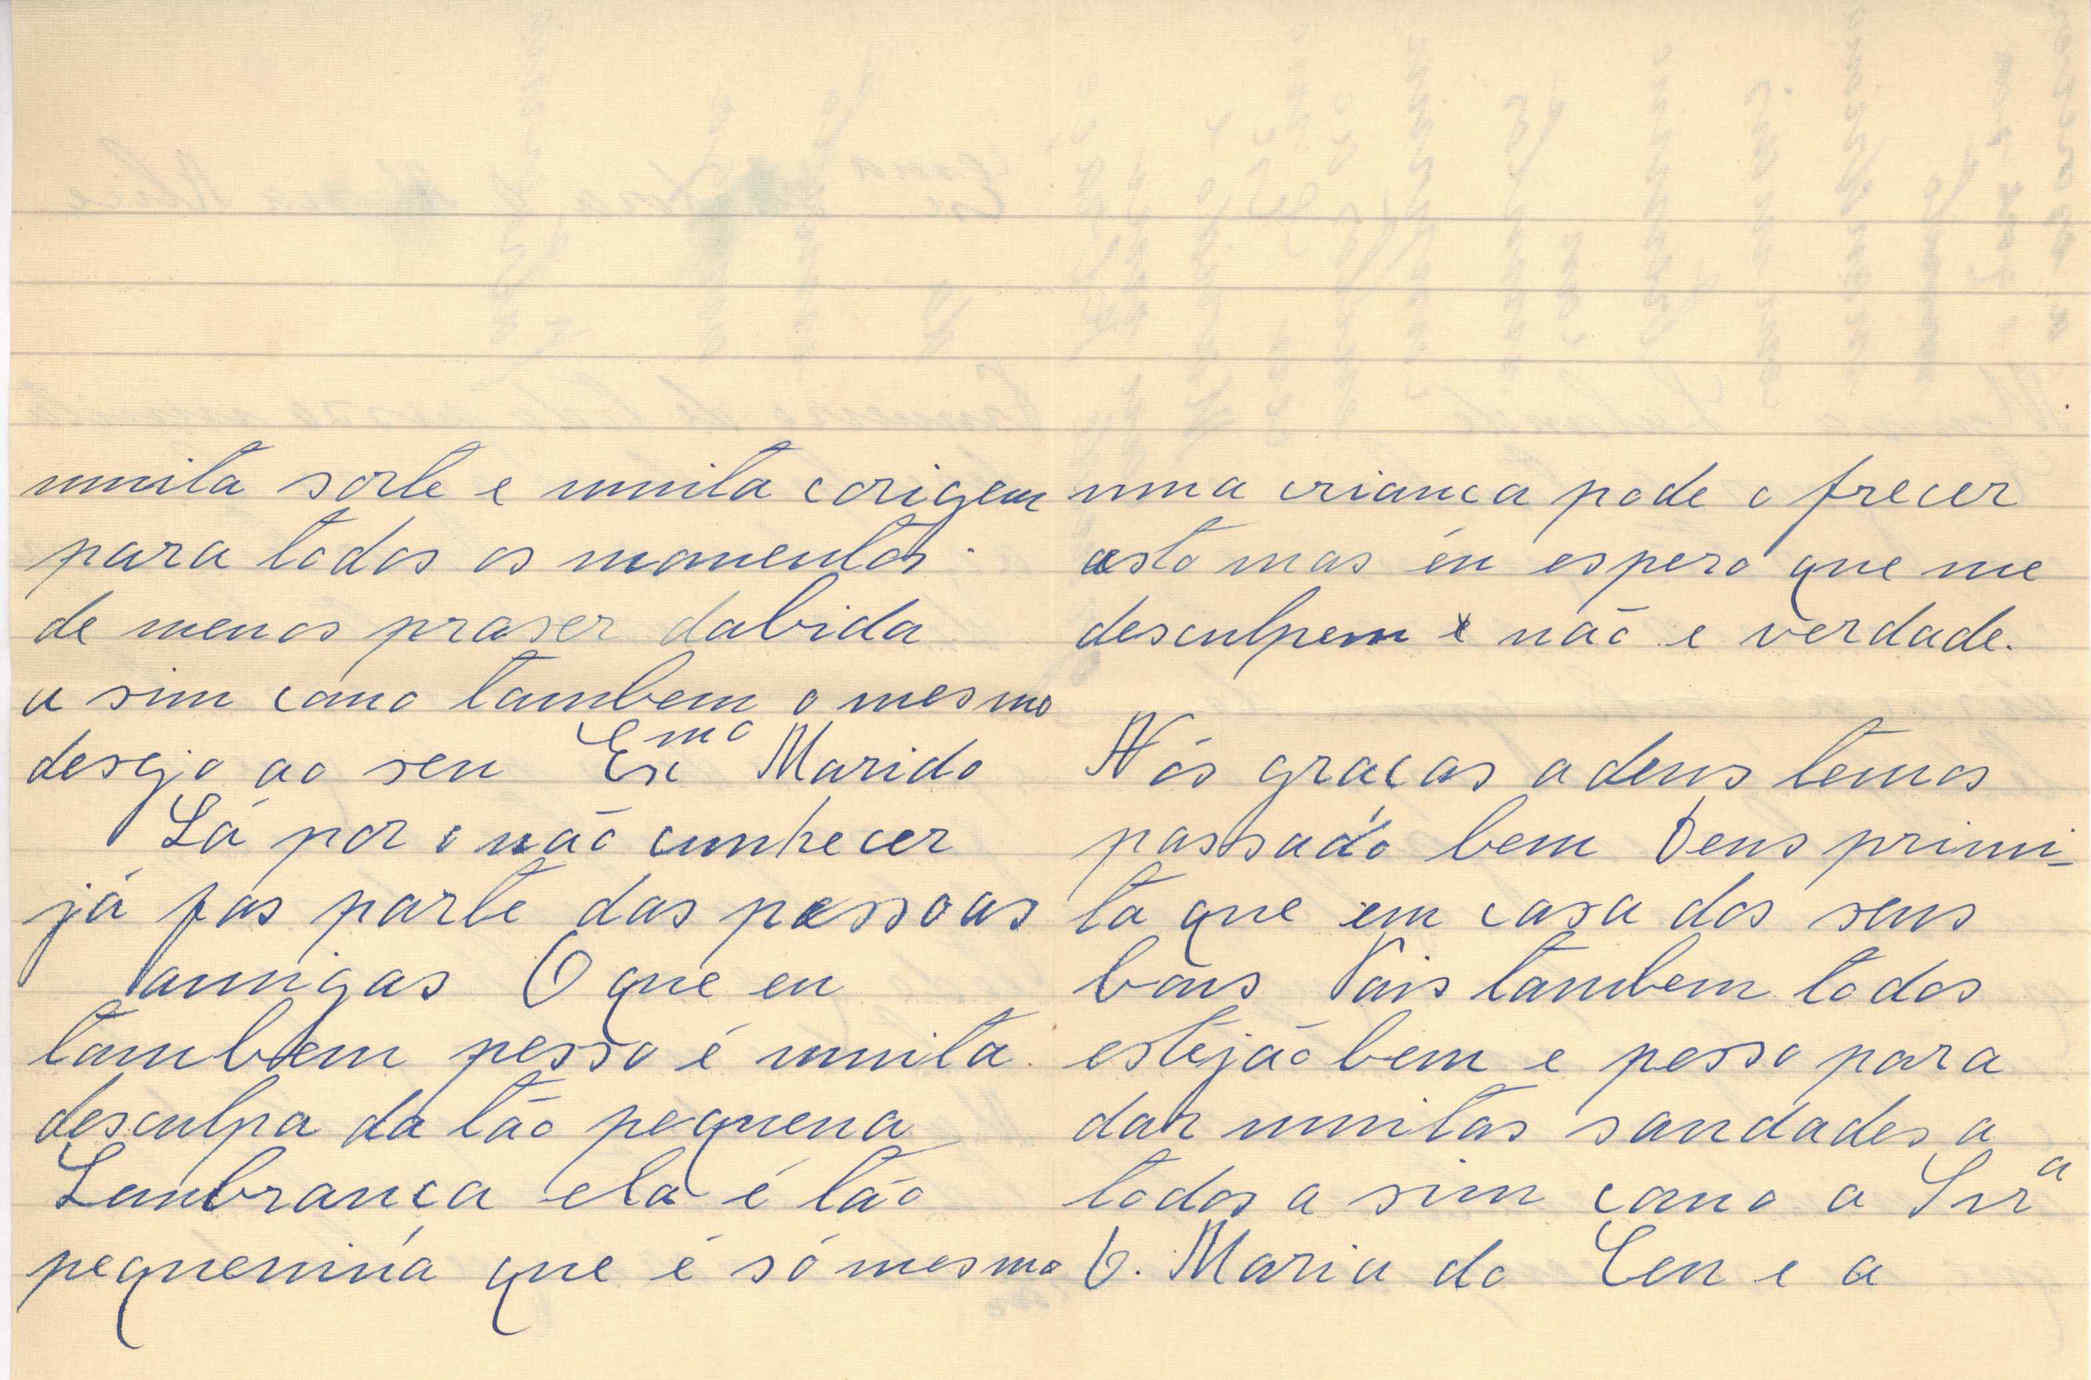 muita sorte e muita corigem
para todos os momentos
de menos praser dabida
a sim como tambem o mesmo
desejo ao seu Exmo Marido
Lá por o não cunhecer
já fas parte das pessoas
amigas O que eu
tambem pesso é muita
desculpa da tão pequena
Lembranca ela é tão
pequenina que é só mesmo
uma crianca pode ofrecer
asto mas éu espero que me
desculpem e não e verdade.
Nós gracas a deus temos
passado bem Deus primi-
ta que em casa dos seus
bons Pais tambem todos
estejão bem e pesso para
dar muitas saudades a
todos a sim como a Snrª
D. Maria do Ceu e a